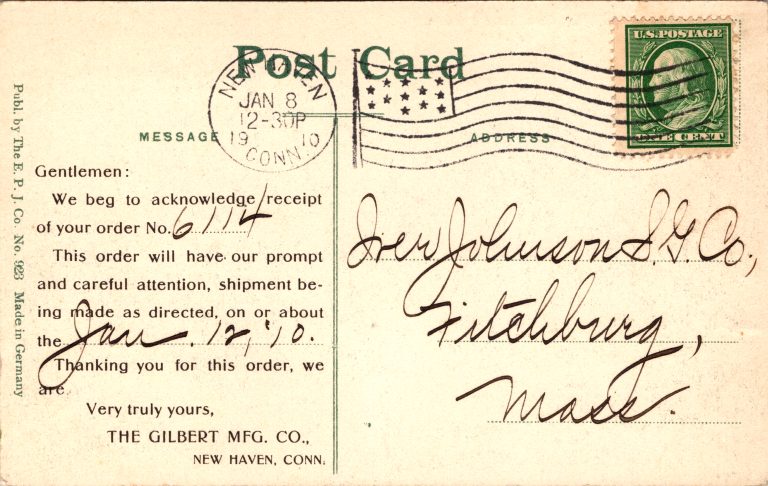 Post Card
U.S. POSTAGE
ONE CENT
NEW HAVEN
JAN 8
12-30P
1910
CONN.
MESSAGE
ADDRESS
Gentlemen:
We beg to acknowledge receipt
of your order No. 6114
This order will have our prompt
and careful attention, shipment be-
ing made as directed, on or about
the Jan. 12, '10.
Thanking you for this order, we
are
Very truly yours,
THE GILBERT MFG. CO.,
NEW HAVEN, CONN.
Iver Johnson S. G. Co.,
Fitchburg,
Mass.
Publ. by The E. P. J. Co. No. 923 Made in Germany